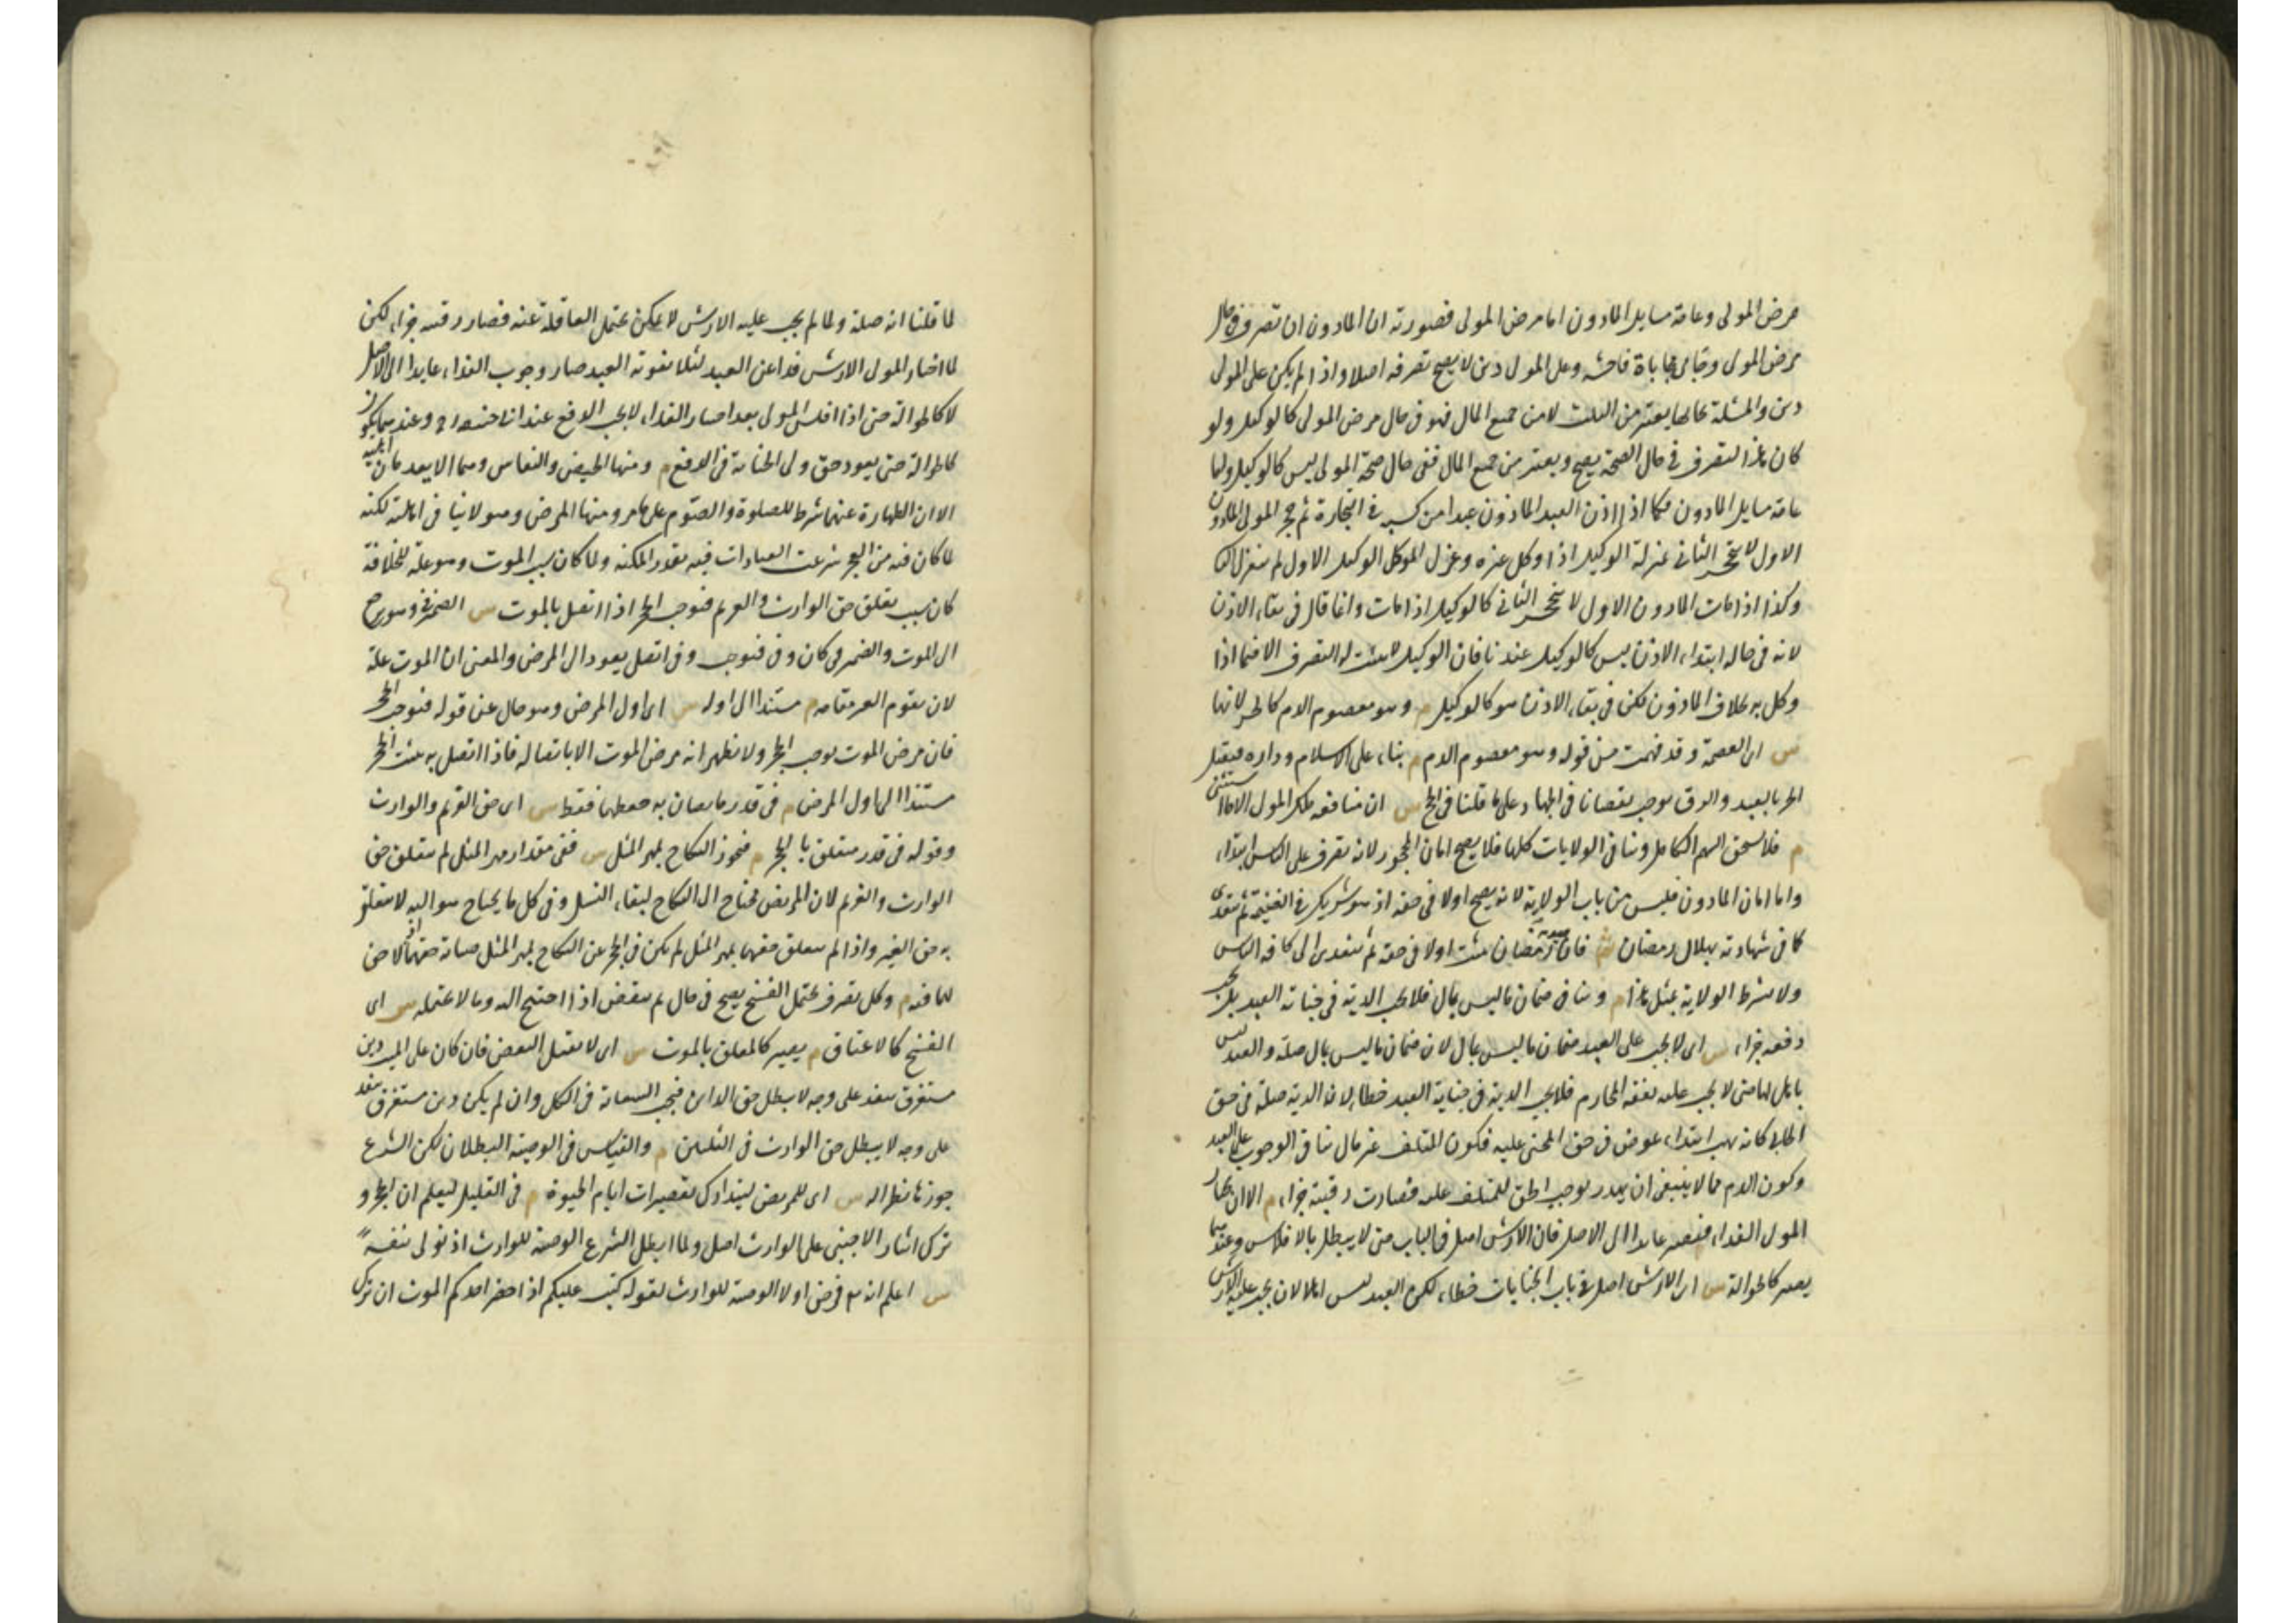 مرض المولى وعامة مسايل المأذون اما مرض المولى فصورته ان المأذون ان تصرف في حال
مرض المولى وحابى محاباة فاحشة وعلى المولى دين لا يصح تصرفه اصلا واذا لم يكن على المولى
دين والمسئلة بحالها يعتبر من الثلث لا من جميع المال فهو في حال مرض المولى كالوكيل ولو
كان هذا التصرف في حال الصحة يصح ويعتبر من جميع المال ففي حال صحة المولى ليس كالوكيل واما
عامة مسايل المأذون فكما اذا اذن العبد المأذون عبدا من كسبه في التجارة ثم حجر المولى المأذون
الاول لا ينحجر الثاني بمنزلة الوكيل اذا وكل غيره وعزل الموكل الوكيل الاول لم ينعزل الثاني
وكذا اذا مات المأذون الاول لا ينحجر الثاني كالوكيل اذا مات وانما قال في بقاء الاذن
لانه في حالة ابتداء الاذن ليس كالوكيل عندنا فان الوكيل لا يثبت له التصرف الا فيما اذا
وكل به بخلاف المأذون لكن في بقاء الاذن هو كالوكيل م وهو معصوم الدم كالحر لانها
س اى العصمة وقد فهمت من قوله وهو معصوم الدم م بناء على الاسلام وداره فيقتل
الحر بالعبد والرق يوجب نقصانا في الجهاد على ما قلنا في الحج س ان منافعه ملك المولى الا ما استثنى
م فلا يستحق السهم الكامل وينافي الولايات كلها فلا يصح امان المحجور لانه تصرف على الناس ابتداء
واما امان المأذون فليس من باب الولاية لانه يصح اولا في حقه اذ هو شريك في الغنيمة ثم يتعدى
كما في شهادته بهلال رمضان ش فان صوم رمضان يثبت اولا في حقه ثم يتعدى الى كافة الناس
ولا يشترط الولاية بمثل هذا م وينافي ضمان ما ليس بمال فلا يجب الدية في جناية العبد بل يجب
دفعه جزاء س اى لا يجب على العبد ضمان ما ليس بمال لان ضمان ما ليس بمال صلة والعبد ليس
باهل لها حتى لا يجب عليه نفقة المحارم فلا يجب الدية في جناية العبد خطأ لان الدية صلة في حق
الجاني كانه يهب ابتداء عوض في حق المجنى عليه فكون المتلف غير مال ينافي الوجوب على العبد
وكون الدم مما لا ينبغي ان يهدر يوجب الحق للمتلف عليه فصارت رقبته جزاء م الا ان يختار
المولى الفداء فيصير عايدا الى الاصل فان الارش اصل في الباب حتى لا يبطل بالافلاس وعندهما
يصير كالحوالة س اى الارش اصل في باب الجنايات خطاء لكن العبد ليس اهلا لان يجب عليه الارش
لما قلنا انه صلة ولما لم يجب عليه الارش لا يمكن تحمل العاقلة عنه فصار رقبته جزاء لكن
لما اختار المولى الارش فداء عن العبد لئلا يفوته العبد صار وجوب الفداء عايدا الى الاصل
لا كالحوالة حتى اذا افلس المولى بعد اختيار الفداء لا يجب الدفع عند ابي حنيفة رح وعندهما يكون
كالحوالة حتى يعود حق ولي الجناية في الدفع م ومنها الحيض والنفاس وهما لا يعدمان اهلية
الا ان الطهارة عنهما شرط للصلوة والصوم على ما مر ومنها المرض وهو لا ينافي اهلية لكنه
لما كان فيه من العجز شرعت العبادات فيه بقدر المكنة ولما كان سبب الموت وهو علة للخلافة
كان سبب تعلق حق الوارث والغريم فيوجب الحجر اذا اتصل بالموت س الضمير في وهو يرجع
الى الموت والضمير في كان وفي فيوجب وفي اتصل يعود الى المرض والمعنى ان الموت علة
لان يقوم الغير مقامه م مستندا الى اوله س اى اول المرض وهو حال عن قوله فيوجب الحجر
فان مرض الموت يوجب الحجر ولا يظهر انه مرض الموت الا باتصاله فاذا اتصل به يثبت الحجر
مستندا الى اول المرض م في قدر ما يصان به حقهما فقط س اى حق الغريم والوارث
وقوله في قدر متعلق بالحجر م فيجوز النكاح بمهر المثل س ففي مقدار مهر المثل لم يتعلق حق
الوارث والغريم لان المريض يحتاج الى النكاح لبقاء النسل وفي كل ما يحتاج هو اليه لا يتعلق
به حق الغير واذا لم يتعلق حقهما بمهر المثل لم يكن في الحجر عن النكاح بمهر المثل صيانة حقهما اذ لا حق
لهما فيه م وكل تصرف يحتمل الفسخ يصح في حال ثم ينقض اذا احتيج اليه وما لا يحتمله س اى
الفسخ كالاعتاق م يصير كالمعلق بالموت س اى لا يقبل النقض فان كان على الميت دين
مستغرق ينفذ على وجه لا يبطل حق الداين فيجب السعاية في الكل وان لم يكن دين مستغرق ينفذ
على وجه لا يبطل حق الوارث في الثلثين م والقياس في الوصية البطلان لكن الشرع
جوزها نظرا له س اى للمريض ليتدارك تقصيرات ايام الحيوة م في القليل ليعلم ان الحجر و
ترك ايثار الاجنبي على الوارث اصل ولما ابطل الشرع الوصية للوارث اذ تولى بنفسه
س اعلم انه تع فرض اولا الوصية للوارث لقوله كتب عليكم اذا حضر احدكم الموت ان ترك